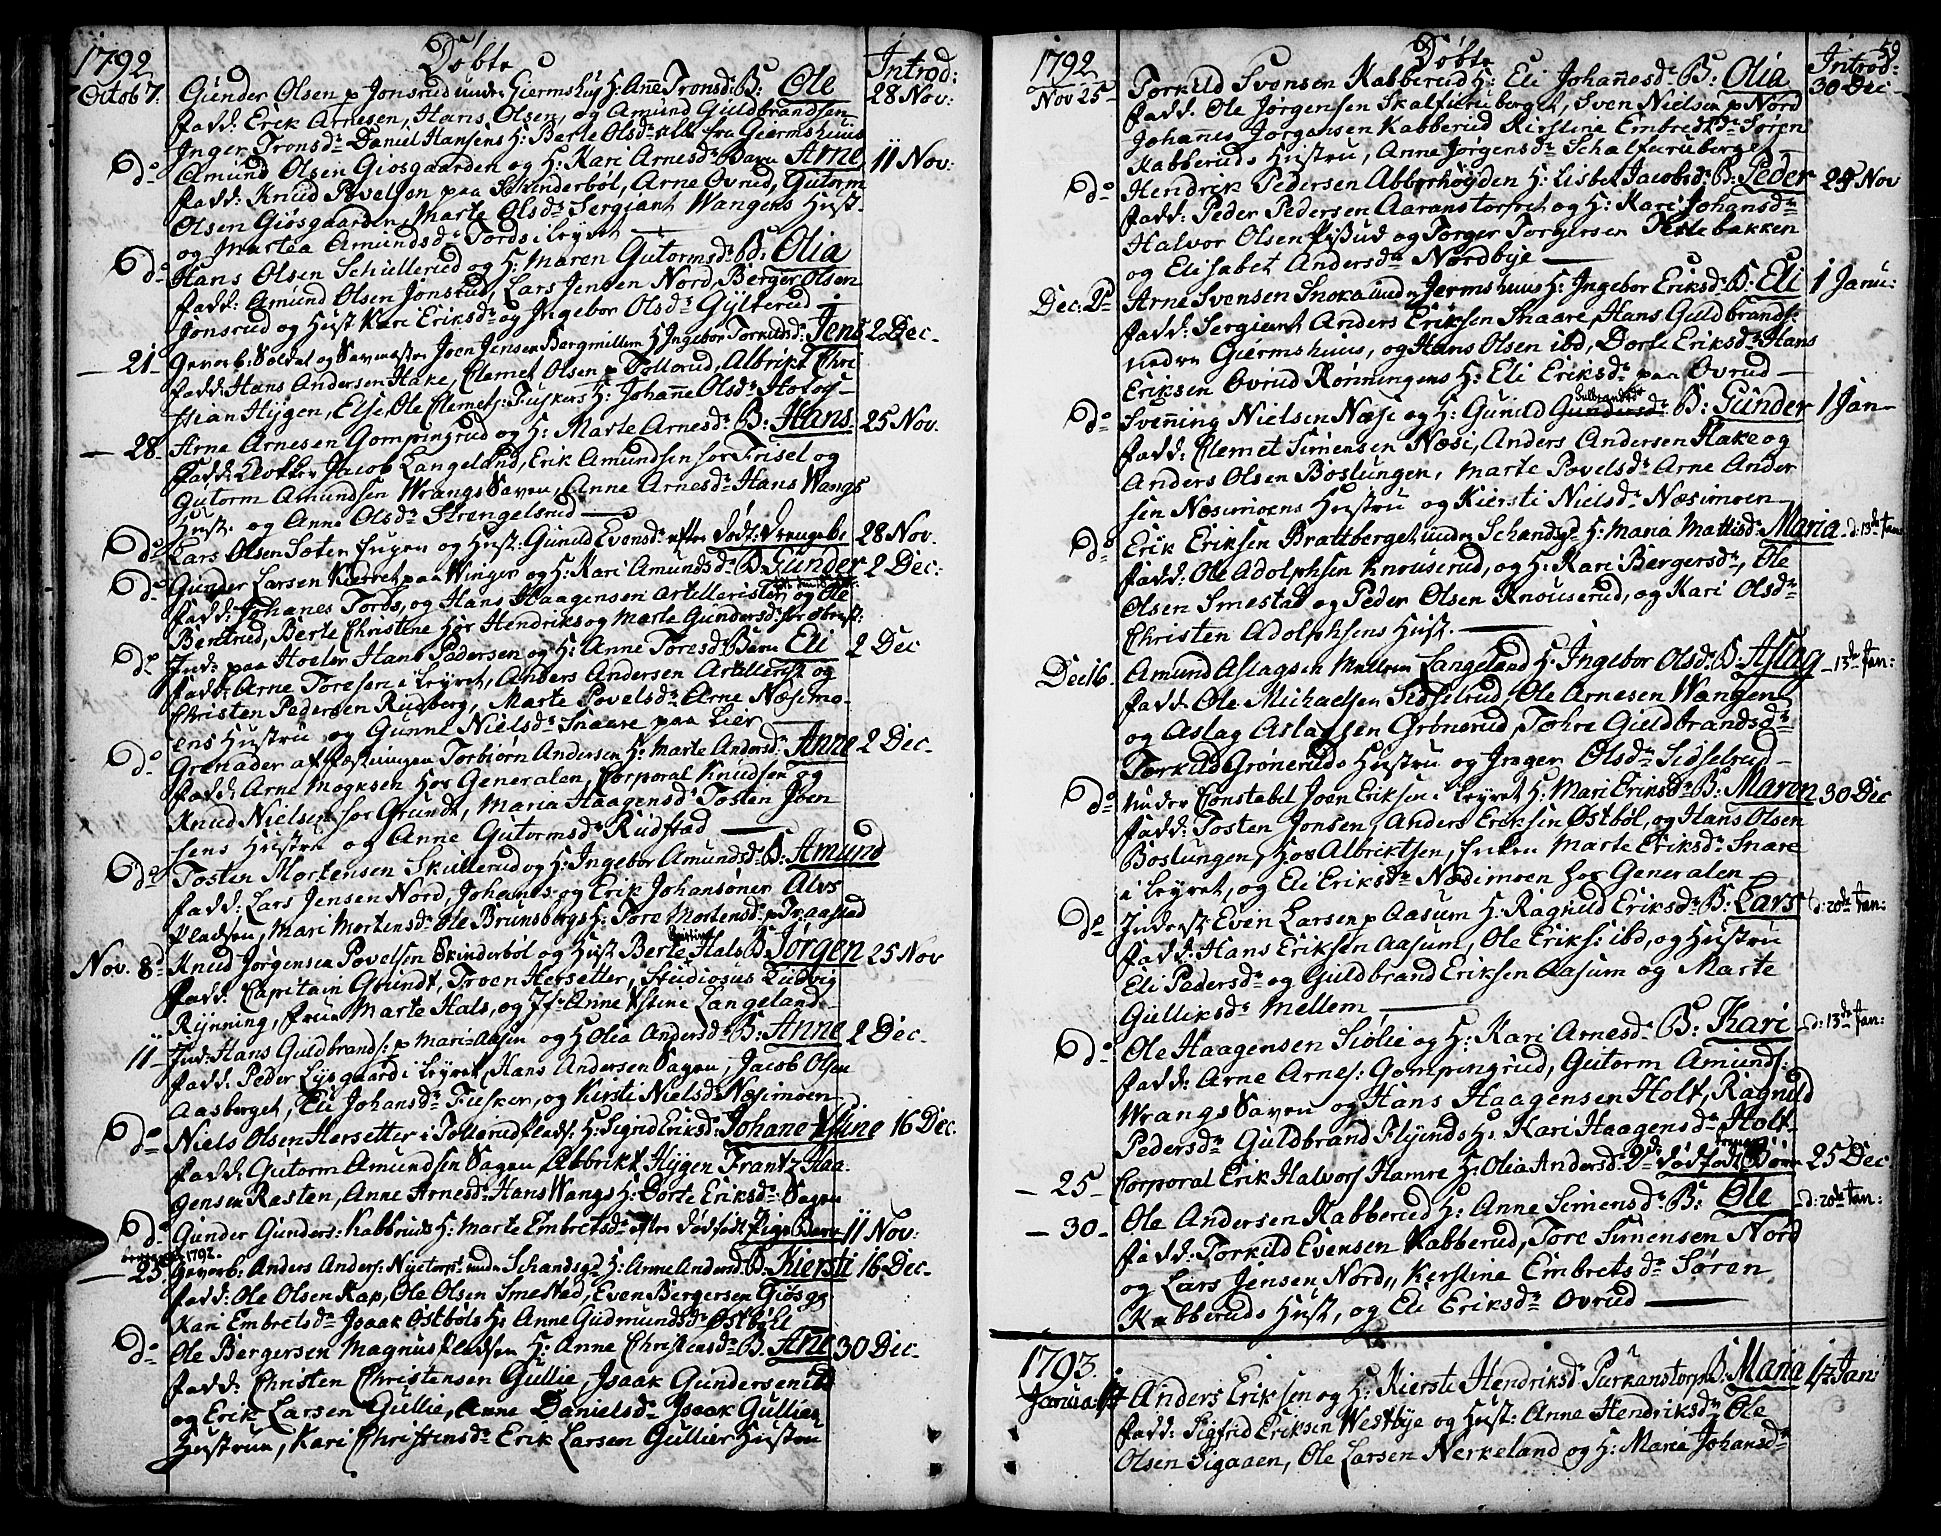 1792 Döbte Introd:
Octob 7. Gunder Olsen p Jonsrud under Giermshus H: Anne Tronsd: B: Ole 28 Nov:
fadd: Erik Arnesen, Hans Olsen, og Amund Guldbrandsen
Inger Tronsd: Daniel Hansens H: Berte Olsd: alle fra Giermshuus
Do Amund Olsen Giosgaarden og H: Kari Arnesd: Barn Arne 11 Nov:
fadd: Knud Povelsen paa Skinderböl, Arne Ovrud, Gutorm
Olsen Giösgaarden, Marte Olsd: Sergiant Wangens Hust.
og Martea Amundsd: Tords i Leyret
Do Hans Olsen Schullerud og H: Maren Gutormsd: B: Olia
fadd: Amund Olsen Jonsrud, Lars Jensen Nord, Berger Olsen
Jonsrud og Hust Kari Eriksd: og Ingebor Olsd: Gylterud
- 21 - Gevorb: Soldat og Savmester Joen Jensen Bergmillem H Ingebor Torkildsd: Jens 2 Dec-
fadd: Hans Andersen Hake, Clemet Olsen p Tollerud, Albrikt Chri
stian Hygen, Else, Ole Clemets: Tuskers H: Johanne Olsd:
- 28 - Arne Arnesen Gompingrud og H: Marte Arnesd: B: Hans. 25 Nov.
Fadd: Klokker Jacob Langeland, Erik Amundsen for Trisel og
Gutorm Amundsen Wrangs Saven, Anne Arnesd: Hans Wangs
Hust: og Anne Olsd: Strengelsrud
Do Lars Olsen Soten og Hust: Gunild Evensd: efter Dodf: Drengeb: 28 Nov.
Do Gunder Larsen Kierret paa Winger og H: Kari Amundsd: B Gunder 2 Dec:
fadd: Johanes Tords, og Hans Haagensen Artelleristen, og Ole
Bentrud, Berte Christine Hos Hendriks og Marte Gundersd:
Do Ind: paa Hoelen Hans Pedersen og H: Anne Toresd: Barn Eli 2 Dec
fadd: Arne Toresen i Leyret, Anders Andersen Artillerist og
Christen Pedersen Rudberg, Marte Povelsd: Arne Næsimo-
ens Hustru og Gunne Nielsd: Snaare paa Lier
Do Grenader af fæstningen Torbiørn Andersen H: Marte Andersd: Anne 2 Dec-
fadd: Arne Mogksen Hos Generalen, Corporal Knudsen og
Knud Nielsen for Grundt, Maria Haagensd: Tosten Joen
sens Hustru og Anne Gutormsd: Rudstad
Do Tosten Mortensen Skullerud og H: Ingebor Amundsd: B: Amund
fadd: Lars Jensen Nord, Johannes og Erik Johansöner Alvs
Pladsen, Mari Mortensd: Ole Brunsbergs H: Tore Mortensd: p Traastad
Nov. 8d Knud Jörgensen Povelsen Skinderböl og Hust Berte Kristine Hals B Jörgen 25 Nov
fadd: Capitain Grundt, Troen Hersetter, Studiosus Ludvig
Rynning, frue Marte Hals, og Jfr Anne Stine Langeland
11 - Ind: Hans Guldbrands: p Mari-Aasen og H Olia Andersd: B: Anne 2 Dec-
fadd: Peder Lysgaard i Leyret, Hans Andersen Sagen, Jacob Olsen
Aasberget, Eli Johansd: Tusker, og Kirsti Nielsd: Næsimoen
Do Niels Olsen Hersetter i Tollerudplads: H: Sigrid Eriksd: Johane Stine 16 Dec.
fadd: Gutorm Amundsen Sagen, Albrikt Hygen, Frantz Haa-
gensen Rasten, Anne Arnesd: Hans Wangs H: Dorte Eriksd: Sagen
Do Gunder Gunders: Kabberud H: Marte Embretsd: efter Dødfødt Pige Barn 11 Nov:
- 25 Gevorb: Anders Anders: Nyetorp: under Schandsgd H: Anne Andersd B: Kiersti 16 Dec-
fadd: Ole Olsen Kap, Ole Olsen Smestad, Even Bergersen Giösg:
Kari Embretsd: Isaak Østböls H: Anne Gudmundsd: Østböll
Do Ole Bergersen Magnuspladsen H: Anne Christensd: B. Ane 30 Dec-
fadd: Christen Christensen Gullie, Isaak Gundersen ibd
og Erik Larsen Gullie, Anne Danielsd: Isaak Gullies
Hustrue, Kari Christensd: Erik Larsen Gullies Hustru
1792 Döbte Introd: 59
Nov 25 - Torkild Svensen Kabberud H: Eli Johanesd: B: Olia 30 Dec-
fadd: Ole Jørgensen Skalfuruberget, Sven Nielsen p Nord
Johannes Jorgensen Kabberud Kirstine Embretsd: Søren
Kabberuds Hustru, Anne Jørgensd: Schalfuruberget
Do Hendrik Pedersen Abborhøgden H: Lisbet Jacobsd: B: Peder 29 Nov
fadd: Peder Pedersen Aaranstorpet og H: Kari Johansd:
Halvor Olsen Pissud og Torger Torgersen Tettebakken
og Elisabet Andersd: Nordbye
Dec: 2d Arne Svensen Snoka under Jermshuus H: Ingebor Eriksd: B: Eli 1 Janu:
fadd: Sergiant Anders Eriksen Snaare, Hans Guldbrands:
neden Giermshuus, og Hans Olsen ibd, Dorte Eriksd: Hans
Eriksen Ovrud Rønningens H: Eli Eriksd: paa Ovrud
Do Svenning Nielsen Næse og H: Gunild Gulbrandsd: B: Gunder 1 Jan-
fadd: Clemet Simensen Næsi, Anders Andersen Hake og
Anders Olsen Boslungen, Marte Povelsd: Arne Ander
sen Næsimoens Hustru og Kiersti Nielsd: Næsimoen
Do Erik Eriksen Brattberget under Schandsgd: H: Maria Mattisd: Maria - d: 13de Jan:
fadd: Ole Adolphsen Knouserud, og H: Kari Bergersd:, Ole
Olsen Smestad og Peder Olsen Knouserud, og Kari Olsd:
Christen Adolphsens Hust.
Dec 16. Amund Aslagsen Mellem Langeland H: Ingebor Olsd: B. Aslag - 13de Jan:
fadd: Ole Michaelsen Sidselrud, Ole Arnesen Wangen
og Aslag Aslagsen Grønerud, Tohre Guldbrandsd:
Torkild Grøneruds Hustru og Inger Olsd: Sidselrud
Do Under Constabel Joen Eriksen i Leyret H: Mari Eriksd: B: Maren 30 Dec
fadd: Tosten Jonsen, Anders Eriksen Østböl, og Hans Olsen
Boslungen, Hos Albriktsen, Enken Marte Eriksd: Snare
i Leyret, og Eli Eriksd: Næsimoen hos Generalen
Do Inderst Even Larsen p Aasum H: Ragnild Eriksd: B: Lars d: 20de Jan:
fadd: Hans Eriksen Aasum, Ole Eriks: ibd, og Hustru
Eli Pedersd: og Guldbrand Eriksen Aasum og Marte
Gulliksd: Mellem
Do Ole Haagensen Liølie og H: Kari Arnesd: B: Kari - d: 13de Jan:
fadd: Arne Arnes: Gompingrud, Gutorm Amunds:
Wrangs Saven og Hans Haagensen Holt, Ragnild
Pedersd: Guldbrand Flyends H: Kari Haagensd: Holt
- 25 - Corporal Erik Halvors Hamre H: Olia Andersd: Dødfødt Børn 25 Dec
- 30 - Ole Andersen Kabberud H: Anne Simensd: B: Ole - d: 20de Jan:
fadd: Torkild Evensen Kabberud, Tore Simensen Nord
og Lars Jensen Nord, Kerstine Embretsd: Søren
Kabberuds Hust, og Eli Eriksd: Ovrud
1793.
Janua: 1 Anders Eriksen og H: Kiersti Hendriksd: Purkanstorp B: Maria 17 Jan:
fadd: Sigfrid Eriksen Westbye og Hust: Anne Hendriksd: Ole
Olsen Sigaaen, Ole Larsen Nerkeland og H: Maria Johansd: